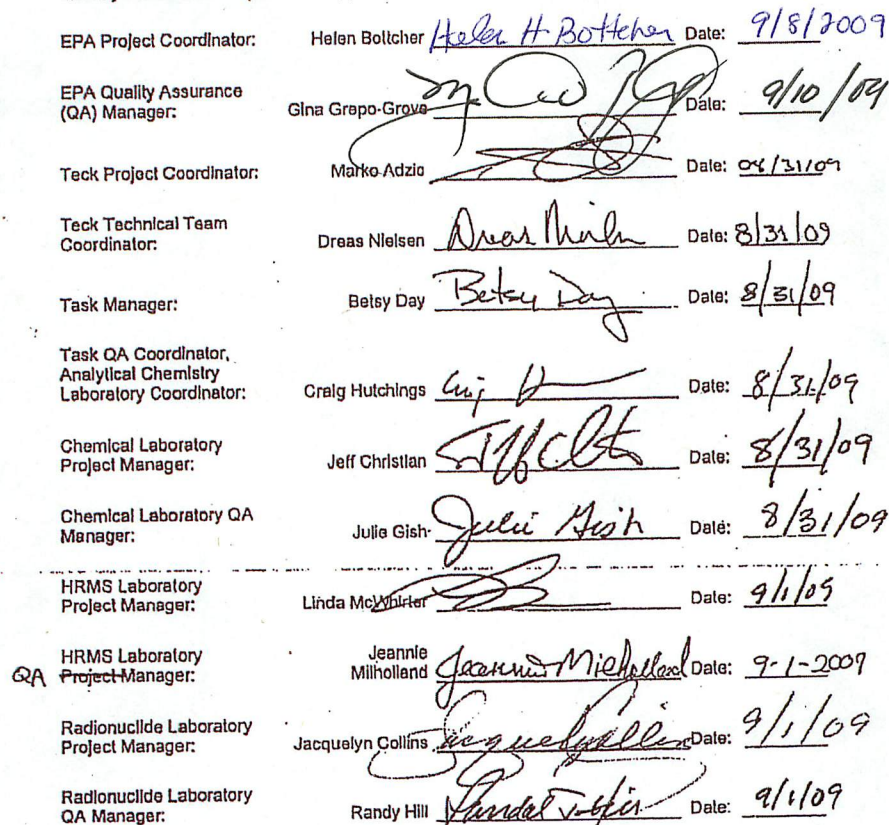 EPA Project Coordinator: Helen Bottcher Helen H Bottcher Date: 9/8/2009
EPA Quality Assurance
(QA) Manager: Gina Grepo-Grove Date: 9/10/09
Teck Project Coordinator: Marko Adzic Date: 08/31/09
Teck Technical Team
Coordinator: Dreas Nielsen Date: 8/31/09
Task Manager: Betsy Day Betsy Day Date: 8/31/09
Task QA Coordinator,
Analytical Chemistry
Laboratory Coordinator: Craig Hutchings Date: 8/31/09
Chemical Laboratory
Project Manager: Jeff Christian Date: 8/31/09
Chemical Laboratory QA
Manager: Julie Gish Julie Gish Date: 8/31/09
HRMS Laboratory
Project Manager: Linda McWhirter Date: 9/1/09
HRMS Laboratory
QA Project Manager: Jeannie Milholland Jeannie Milholland Date: 9-1-2009
Radionuclide Laboratory
Project Manager: Jacquelyn Collins Jacquelyn Collins Date: 9/1/09
Radionuclide Laboratory
QA Manager: Randy Hill Date: 9/1/09